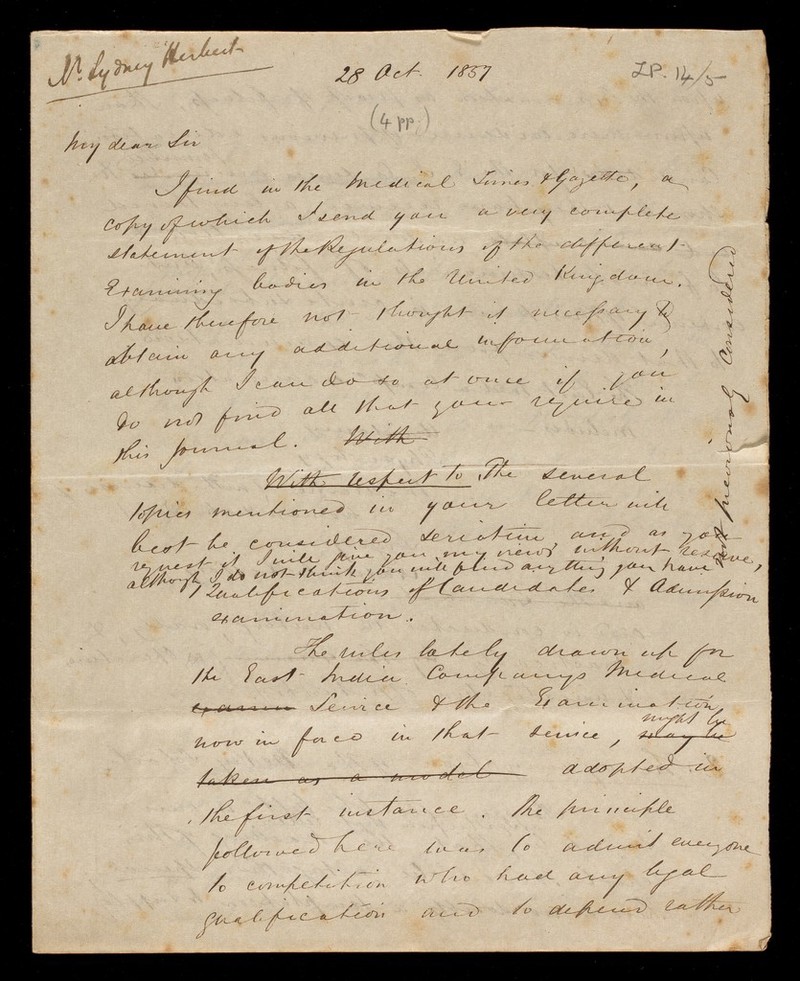 Mr. Sydney Herbert
28 Oct. 1857
L.P. 14/5
(4 pp.)
My dear Sir
I find in the Medical Times & Gazette, a
copy of which I send you a very complete
statement of the Regulations of the different
Examining bodies in the United Kingdom.
I have therefore not thought it necessary to
obtain any additional information,
although I can do so at once if you
do not find all that you require in
this Journal. With
With respect to The several
topics mentioned in your letter will
best be considered seriatim, and as you
request it I will give you my views without reserve,
although I do not think you will find anything you have
not previously considered
1, Qualifications of Candidates & Admission
examination.
The rules lately drawn up for
the East India Companys Medical
examn Service & the Examination
now in force in that service, may be
might be
taken as a model adopted in
the first instance. The principle
followed here was to admit everyone
to competition who had any legal
qualification and to depend rather